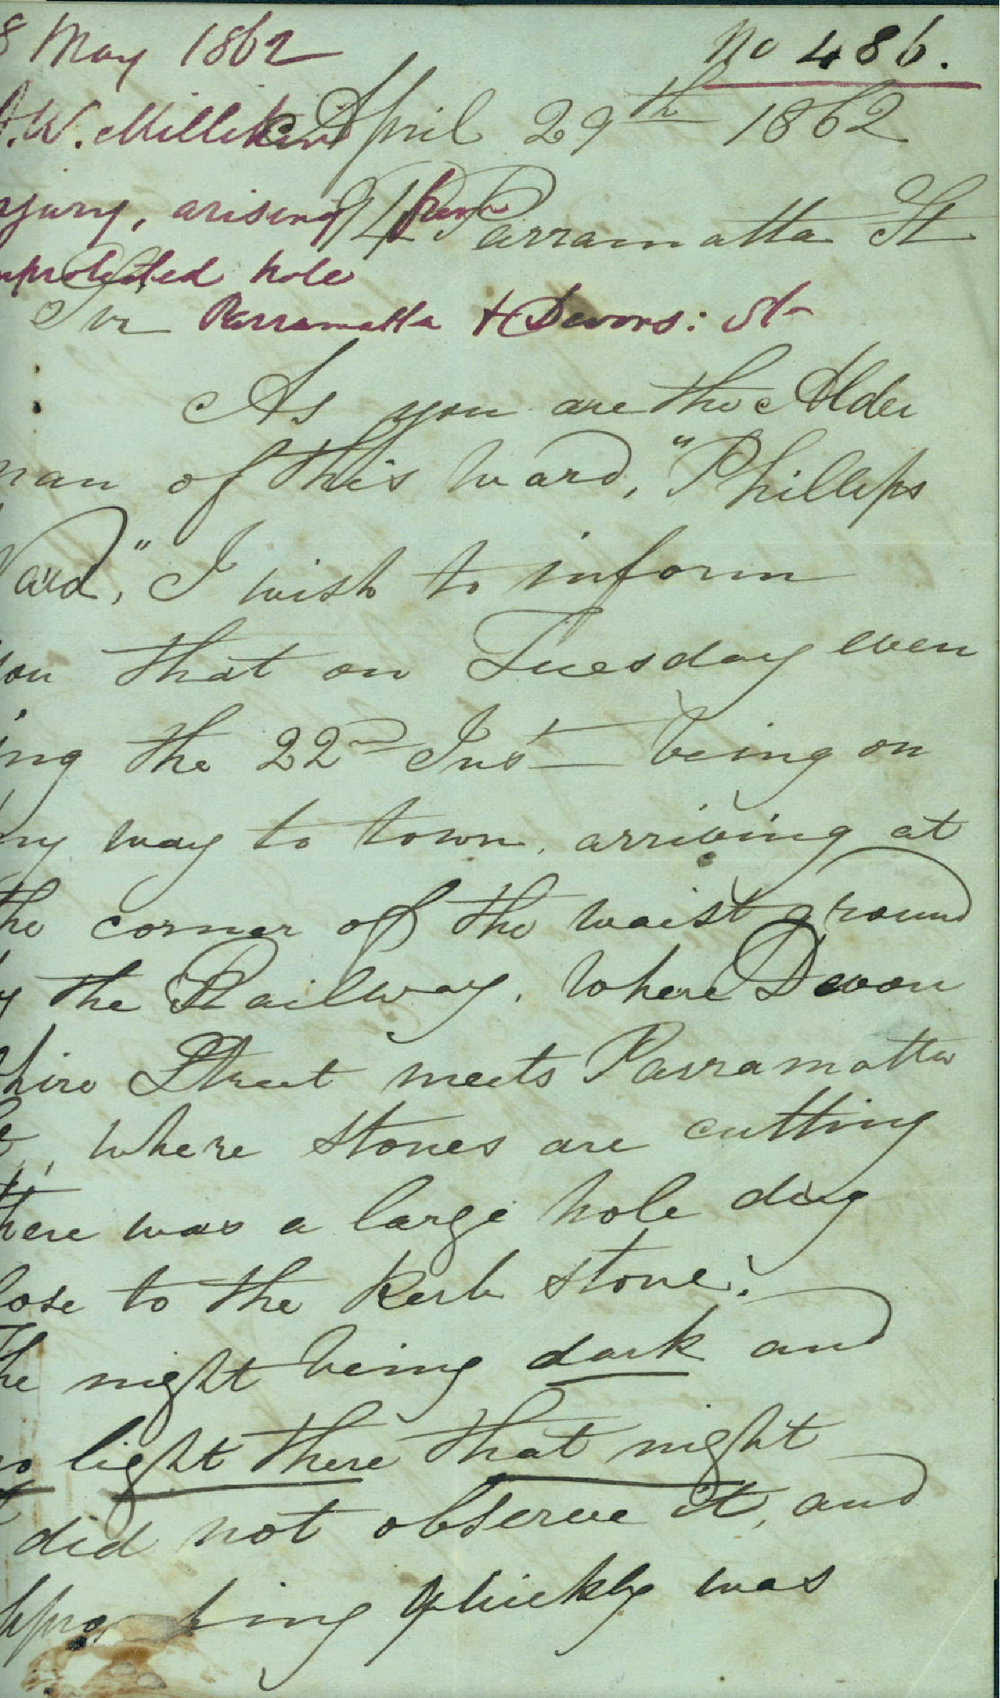 8 May 1862
No 486.
.W. Milliken
April 29th 1862
njury, arising from
Parramatta St
nprotected hole
Sir
Parramatta & Devons: St
As you are the Alder
man of this Ward, "Phillips
Ward," I wish to inform
you that on Tuesday even
ing the 22nd Inst being on
my way to town, arriving at
the corner of the waist ground
by the Railway, where Devon
shire Street meets Parramatta
where stones are cutting
there was a large hole dug
lose to the Kerb stone.
The night being dark and
no light there that night
did not observe it, and
quickly was